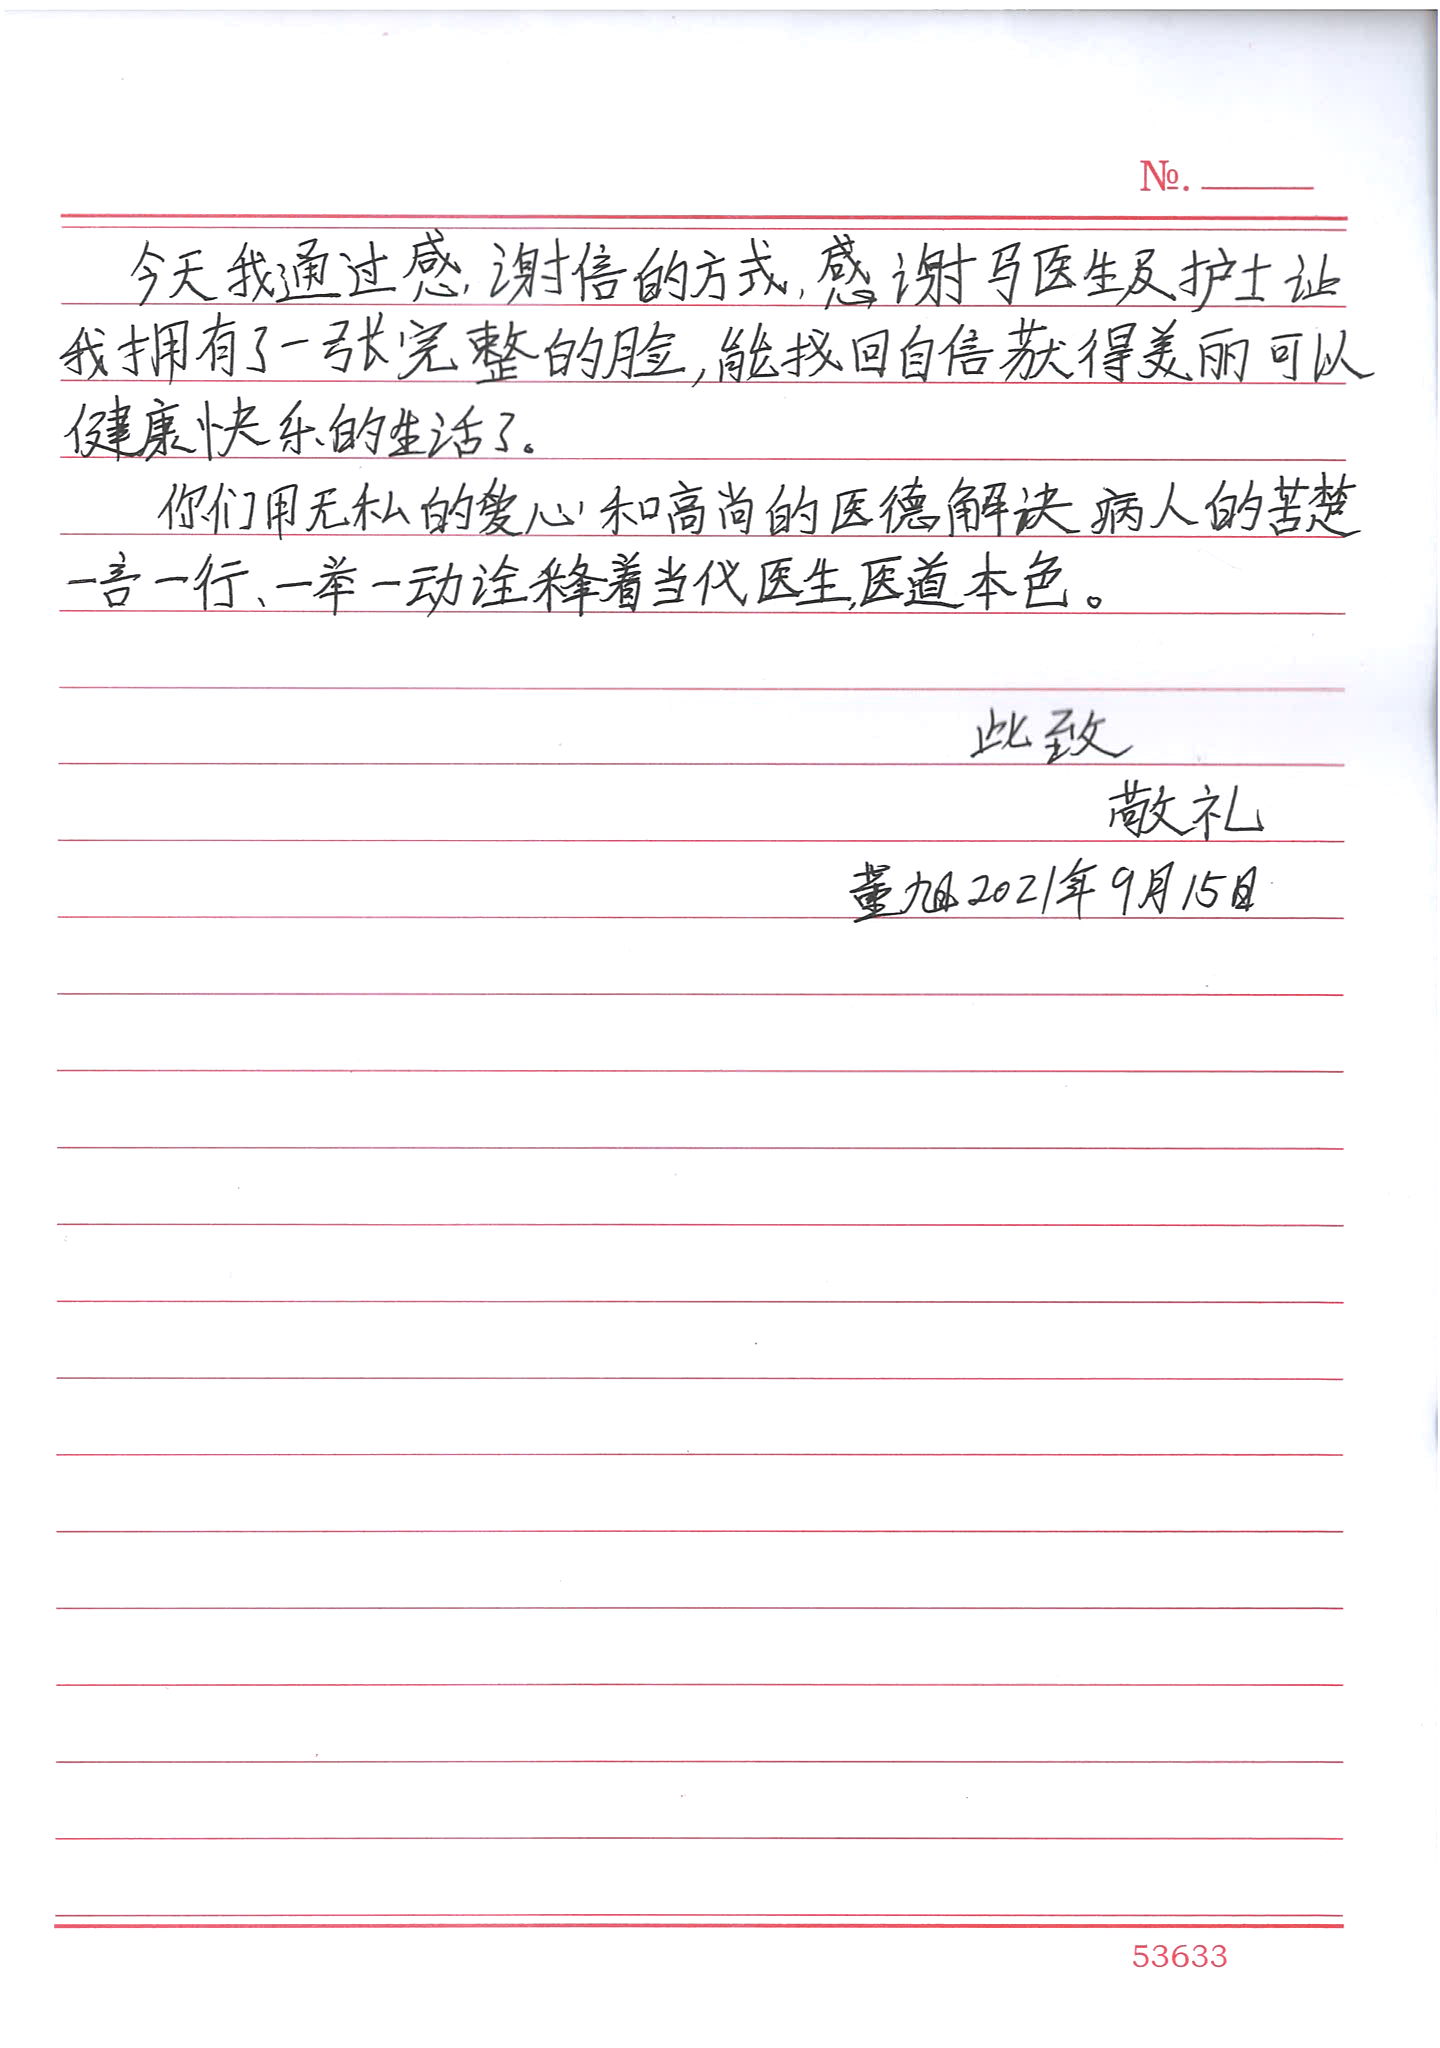 №.
今天我通过感谢信的方式,感谢马医生及护士让
我拥有了一张完整的脸,能找回自信获得美丽可以
健康快乐的生活了。
你们用无私的爱心和高尚的医德解决病人的苦楚
一言一行、一举一动诠释着当代医生,医道本色。
此致
敬礼
董旭2021年9月15日
53633